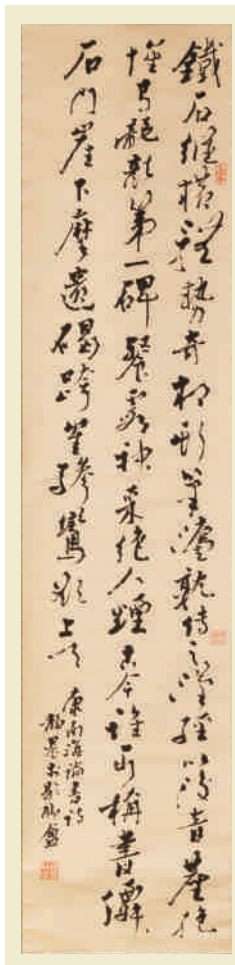 鐵石縱橫體勢奇相斯筆灋孰傳之漢經以後音塵絕
惟有龍顏第一碑餐霞神采絕人煙古今誰可稱書僊
石門崖下摩遺碣跨驂鸞欲上天
康南海論書詩
靜農書於歇腳盦